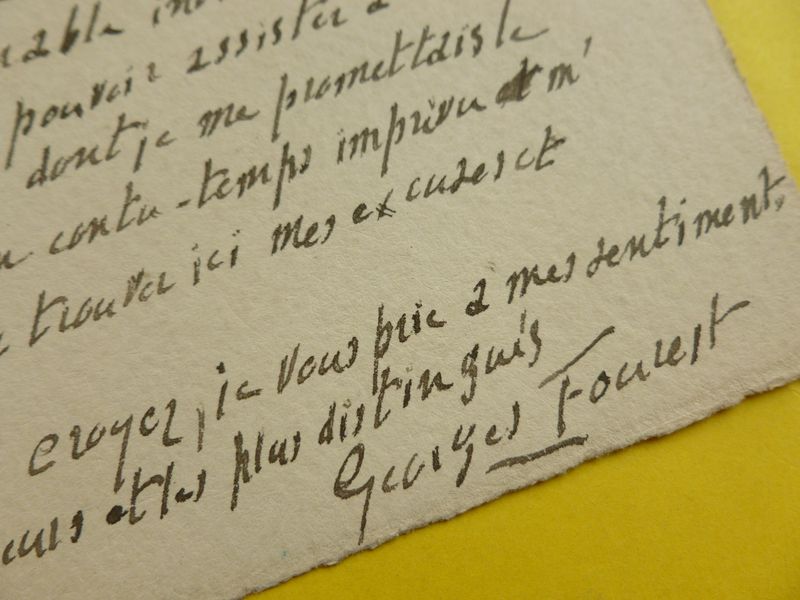 pouvoir assister à
dont je me promettais le
contre-temps imprévu et m'
trouver ici mes excuses et
croyez, je vous prie à mes sentiments
et les plus distingués
Georges Fourest